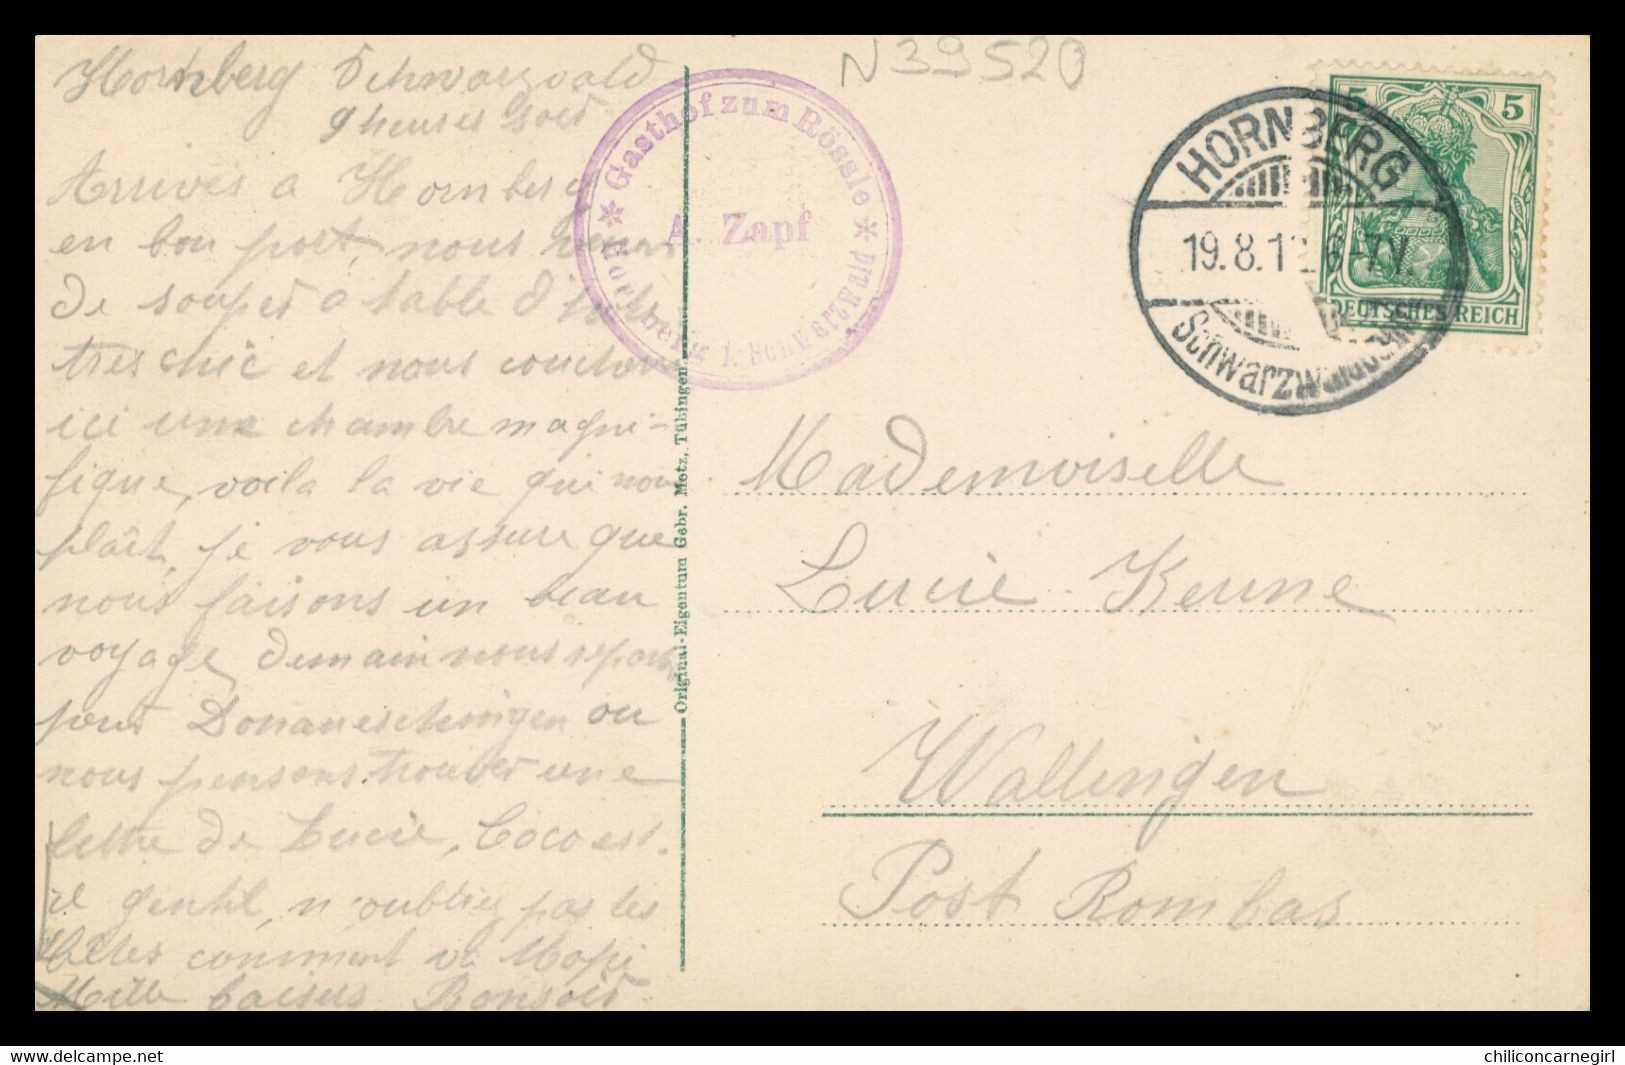 Hornberg Schwarzwald
9 heures soir
Arrivés a Hornberg
en bon port, nous venons
de souper a table d'hote
tres chic et nous couchons
ici une chambre magni-
fique, voila la vie qui nous
plaît, je vous assure que
nous faisons un beau
voyage, demain nous repartons
pour Donaueschingen ou
nous pensons trouver une
lettre de Lucie, Coco est-
il gentil, n'oubliez pas les
bêtes comment va
Mille baisers, Bonsoir
N39520
* Gasthof zum Rössle *
A. Zapf
Hornberg i. Schwarzwald
HORNBERG
19.8.12.6-7V.
(Schwarzwaldbahn)
5 5
DEUTSCHES REICH
Original-Eigentum Gebr. Metz, Tübingen.
Mademoiselle
Lucie Keune
Wallingen
Post Rombas
https://www.delcampe.net
chiliconcarnegirl